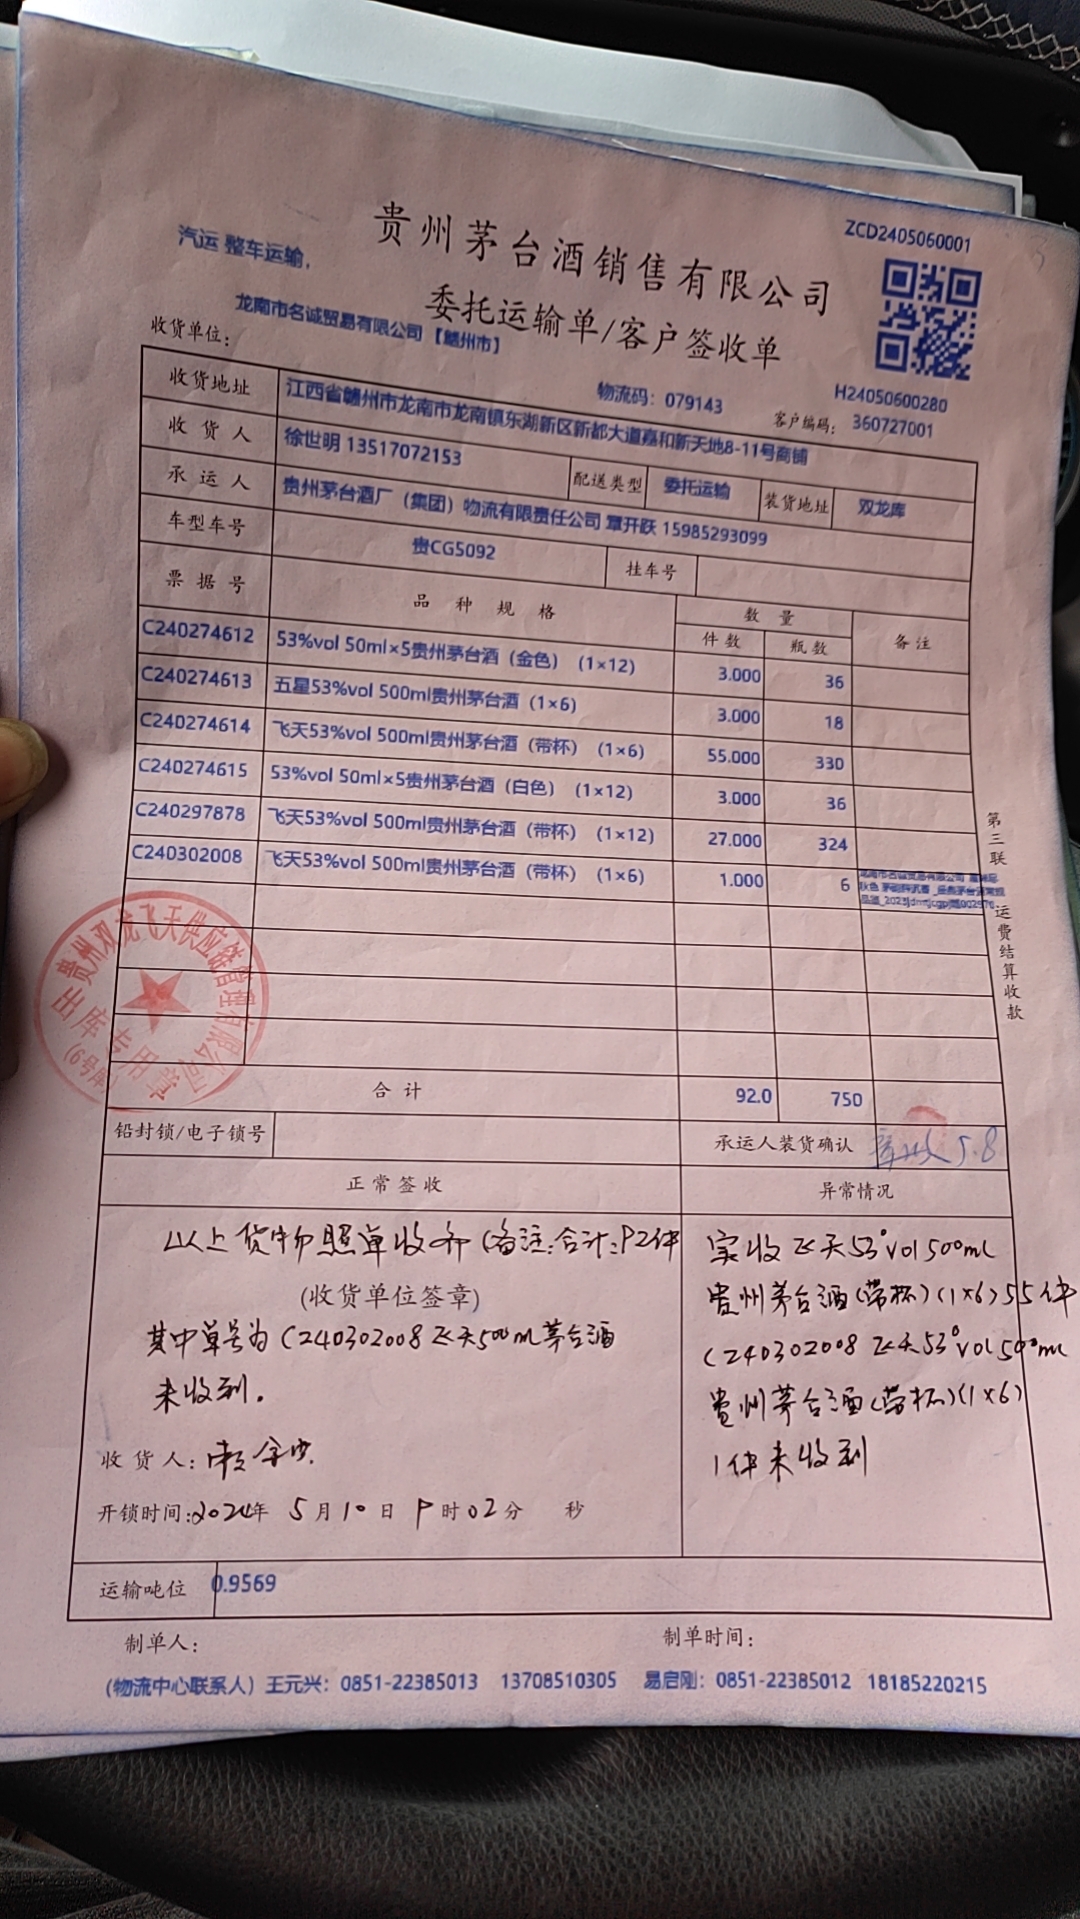 ZCD2405060001
汽运 整车运输,
贵州茅台酒销售有限公司
委托运输单/客户签收单
收货单位: 龙南市名诚贸易有限公司【赣州市】
物流码: 079143
H24050600280
客户编码: 360727001
收货地址 江西省赣州市龙南市龙南镇东湖新区新都大道嘉和新天地8-11号商铺
收货人 徐世明 13517072153 配送类型 委托运输 装货地址 双龙库
承运人 贵州茅台酒厂(集团)物流有限责任公司 覃开跃 15985293099
车型车号 贵CG5092 挂车号
票据号 品种规格 数量 备注
件数 瓶数
C240274612 53%vol 50ml×5贵州茅台酒(金色) (1×12) 3.000 36
C240274613 五星53%vol 500ml贵州茅台酒 (1×6) 3.000 18
C240274614 飞天53%vol 500ml贵州茅台酒(带杯) (1×6) 55.000 330
C240274615 53%vol 50ml×5贵州茅台酒(白色) (1×12) 3.000 36
C240297878 飞天53%vol 500ml贵州茅台酒(带杯) (1×12) 27.000 324
C240302008 飞天53%vol 500ml贵州茅台酒(带杯) (1×6) 1.000 6
龙南市名诚贸易有限公司
第三联 运费结算收款
贵州双龙飞天供应链管理有限公司
出库专用章
(6号库)
合计 92.0 750
铅封锁/电子锁号 承运人装货确认 5.8
正常签收 异常情况
以上货物照单收齐(备注:合计:92件
(收货单位签章)
其中单号为C240302008飞天500ml茅台酒
未收到.
收货人:
开锁时间:2024年 5月10日 9时02分 秒
实收飞天53°vol500ml
贵州茅台酒(带杯)(1×6)55件
C240302008飞天53°vol500ml
贵州茅台酒(带杯)(1×6)
1件未收到
运输吨位 0.9569
制单人: 制单时间:
(物流中心联系人) 王元兴: 0851-22385013 13708510305 易启刚: 0851-22385012 18185220215